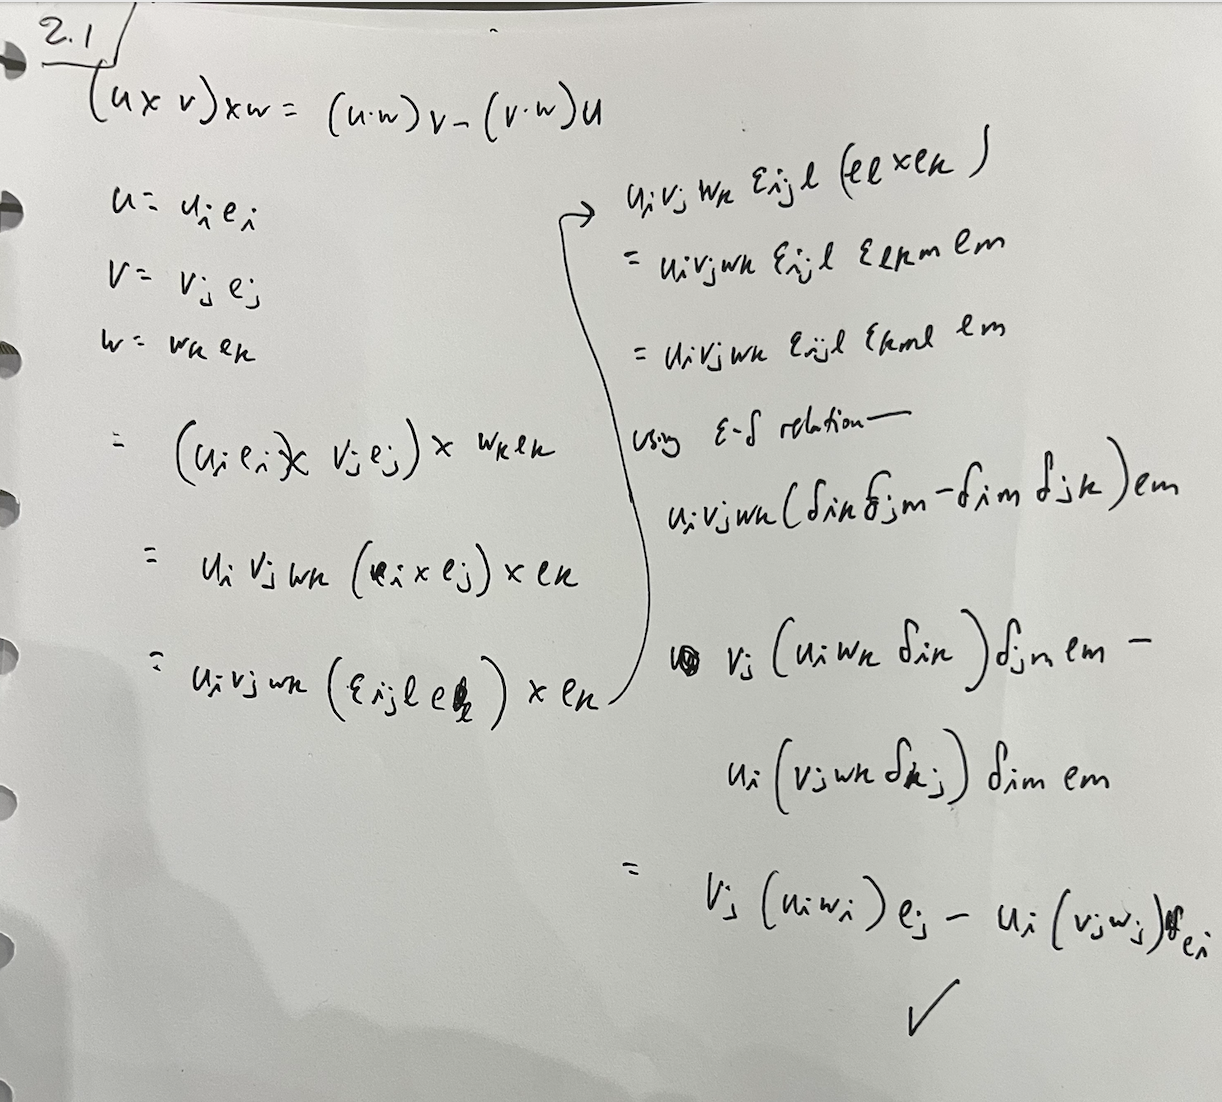 2.1
(u × v) × w = (u·w) v - (v·w) u
u = uᵢ eᵢ
v = vⱼ eⱼ
w = wₖ eₖ
= (uᵢ eᵢ × vⱼ eⱼ) × wₖ eₖ
= uᵢ vⱼ wₖ (eᵢ × eⱼ) × eₖ
= uᵢ vⱼ wₖ (εᵢⱼₗ eₗ) × eₖ
→ uᵢ vⱼ wₖ εᵢⱼₗ (eₗ × eₖ)
= uᵢ vⱼ wₖ εᵢⱼₗ εₗₖₘ eₘ
= uᵢ vⱼ wₖ εᵢⱼₗ εₖₘₗ eₘ
using ε-δ relation —
uᵢ vⱼ wₖ (δᵢₖ δⱼₘ - δᵢₘ δⱼₖ) eₘ
vⱼ (uᵢ wₖ δᵢₖ) δⱼₘ eₘ -
uᵢ (vⱼ wₖ δₖⱼ) δᵢₘ eₘ
= vⱼ (uᵢ wᵢ) eⱼ - uᵢ (vⱼ wⱼ) eᵢ
✓